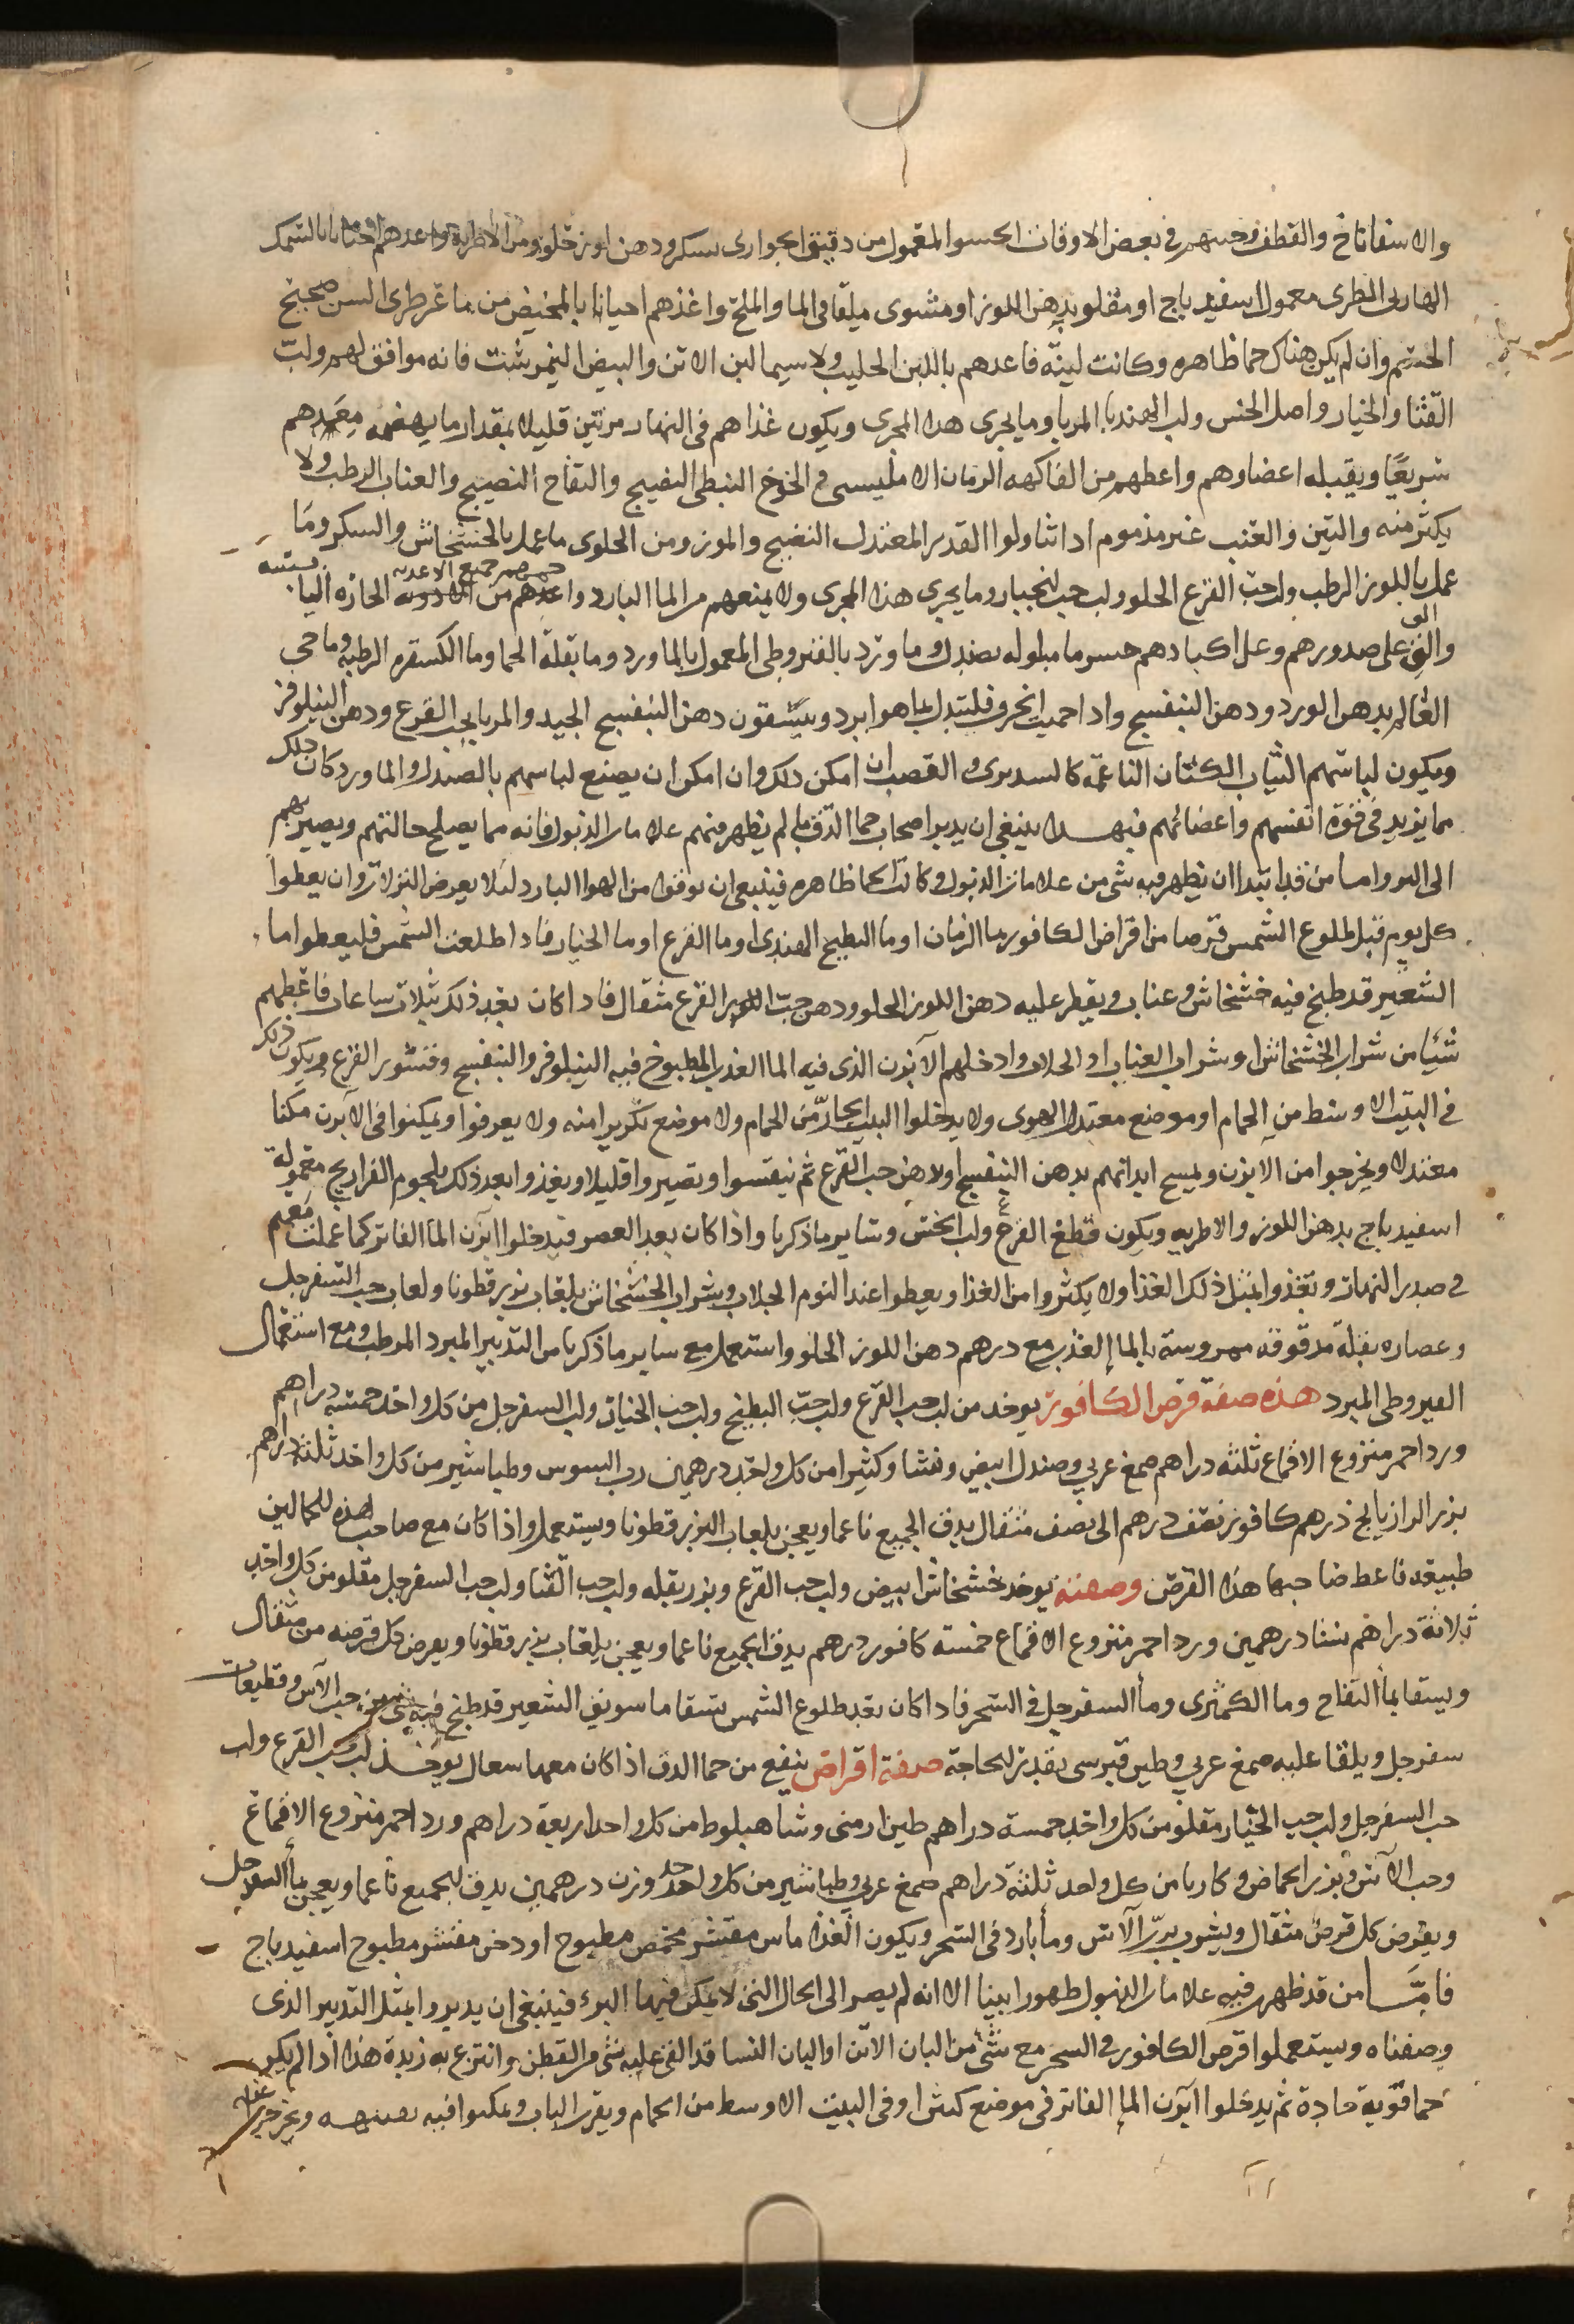 والاسفاناخ والقطف وحسهم في بعض الاوقات الحسو المعمول من دقيق الحوارى بسكر ودهن لوز حلو ومن الاطرية واغدهم احيانا بالسمك
الهاربى الطرى معمول اسفيدباج او مقلو بدهن اللوز او مشوى ملقا فى الما والملح واغذهم احيانا بالمخيض من ماعز طرى السن صحيح
الجسم وان لم يكن هناك حما ظاهره وكانت لينه فاغدهم باللبن الحليب ولا سيما لبن الاتن والبيض النيمرشت فانه موافق لهم ولب
القثا والخيار واصل الخس ولب الهندبا المربا وما يجرى هدا المجرى ويكون غذاهم فى النهار مرتين قليلا بمقدار ما يهضمه معدهم
سريعًا ويقبله اعضاوهم واعطهم من الفاكهه الرمان الامليسى والخوخ النبطى النضيج والتفاح النضيج والعناب الرطب ولا
يكثر منه والتين والعنب غير مذموم اذا تناولوا القدر المعتدل النضيج والموز ومن الحلوى ما عمل بالخشخاش والسكر وما
عمل باللوز الرطب ولب حب القرع الحلو ولب حب الخيار وما يجرى هذا المجرى ولا يمنعهم من الما البارد جميع الاغديه الحاره اليابسه
والق على صدورهم وعلى اكبادهم خرقا مبلوله بصندل وما ورد بالقيروطى المعمول بالما ورد وما بقلة الحما وما الكسفره الرطبه وما حى
العالم بدهن الورد ودهن البنفسج واذا حميت الخرق فليتبدل بما هو ابرد وينشقون دهن البنفسج الجيد والمربا بحب القرع ودهن النيلوفر
ويكون لباسهم الثياب الكتان الناعمه كالسديرى والقصب ان امكن ذلك وان امكن ان يصنع لباسهم بالصندل والما ورد كان ذلك
مما يزيد فى قوة انفسهم واعضائهم فبهدا ينبغى ان يدبر اصحاب حما الدق ما لم يظهر منهم علامات الذبول فانه مما يصلح حالتهم ويصير بهم
الى البر واما من قد ابتدا ان يظهر فيه شى من علامات الذبول وكانت الحما ظاهره فينبغى ان يوقوا من الهوا البارد لئلا يعرض النزلات وان يعطوا
كل يوم قبل طلوع الشمس قرصا من اقراض الكافور بما الرمان او ما البطيخ الهندى او ما القرع او ما الخيار فاذا طلعت الشمس فليعطوا ما
الشعير قد طبخ فيه خشخاش وعناب ويقطر عليه دهن اللوز الحلو ودهن حب القرع مثقال فاذا كان بعد ذلك بثلاث ساعات فاعطهم
شيئا من شراب الخشخاش او شراب العناب او الجلاب وادخلهم الآبزن الذى فيه الما العذب المطبوخ فيه النيلوفر والبنفسج وقشور القرع ويكون ذلك
فى البيت الاوسط من الحمام او موضع معتدل الهوى ولا يدخلوا البيت الحار من الحمام ولا موضع تكربوا منه ولا يعرقوا ويمكثوا فى الابزن مكثا
معتدلا ويخرجوا من الابزن ويمسح ابدانهم بدهن البنفسج او دهن حب القرع ثم نيفسوا ويصيروا قليلا ويغذوا بعد ذلك بلحوم الفراريج معمولة
اسفيدباج بدهن اللوز والاطريه ويكون قطع القرع ولب الخس وساير ما ذكرنا واذا كان بعد العصر فيدخلوا ابزن الما الفاتر كما عملت معهم
فى صدر النهار وتغذوا بمثل ذلك الغذا ولا يكثروا من الغذا ويعطوا عند النوم الجلاب وشراب الخشخاش بلعاب بزر قطونا ولعاب حب السفرجل
وعصاره بقلة مدقوقه ممروسة بالما العذب مع درهم دهن اللوز الحلو واستعمل مع ساير ما ذكرنا من التدبير المبرد المرطب ومع استعمال
القيروطى المبرد هذه صفة قرص الكافور يوخد من لب حب القرع ولب حب البطيخ ولب حب الخيار ولب السفرجل من كل واحد خمسة دراهم
ورد احمر منزوع الاقماع ثلثة دراهم صمغ عربى وصندل ابيض ونشا وكثيرا من كل واحد درهمين رب السوس وطباشير من كل واحد ثلثة دراهم
بزر الرازيانج درهم كافور نصف درهم الى نصف مثقال يدق الجميع ناعما ويعجن بلعاب البزر قطونا ويستعمل واذا كان مع صاحب هذه الحما لين
طبيعه فاعط صاحبها هذا القرص وصفته يوخد خشخاش ابيض ولب حب القرع وبزر بقله ولب حب القثا ولب حب السفرجل مقلو من كل واحد
ثلاثة دراهم نشا درهمين ورد احمر منزوع الاقماع خمسة كافور درهم يدق الجميع ناعما ويعجن بلعاب بزر قطونا ويعرض كل قرصه من مثقال
ويسقا بما التفاح وما الكمثرى وما السفرجل فى السحر فاذا كان بعد طلوع الشمس يسقا ما سويق الشعير قد طبخ فيه شى من حب الآس وقطيعات
سفرجل ويلقا عليه صمغ عربى وطين قبرسى بقدر الحاجة صفة اقراص ينفع من حما الدق اذا كان معها سعال يوخذ لب حب القرع ولب
حب السفرجل ولب حب الخيار مقلو من كل واحد خمسة دراهم طين ارمنى وشاهبلوط من كل واحد اربعة دراهم ورد احمر منزوع الاقماع
وحب الآس وبزر الحماض وكاربا من كل واحد ثلثة دراهم صمغ عربى وطباشير من كل واحد وزن درهمين يدق الجميع ناعما ويعجن بما السفرجل
ويقرض كل قرص مثقال ويشرب برب الآس وما بارد فى السحر ويكون الغذا ماس مقشر محمص مطبوخ او دخن مقشر مطبوخ اسفيدباج
فامَّا من قد ظهر فيه علامات الذبول ظهورا بينا الا انه لم يصر الى الحال التى لا يمكن فيها البرء فينبغى ان يدبروا بمثل التدبير الذى
وصفناه ويستعملوا قرص الكافور فى السحر مع شى من البان الاتن او البان النسا قد القى عليه شى من القطن وانتزع به زبدة هذا اذا لم يكن
حما قوية حادة ثم يدخلوا ابزن الما الفاتر فى موضع كنين او فى البيت الاوسط من الحمام ويقرب الباب ويمكثوا فيه ويخرجوا